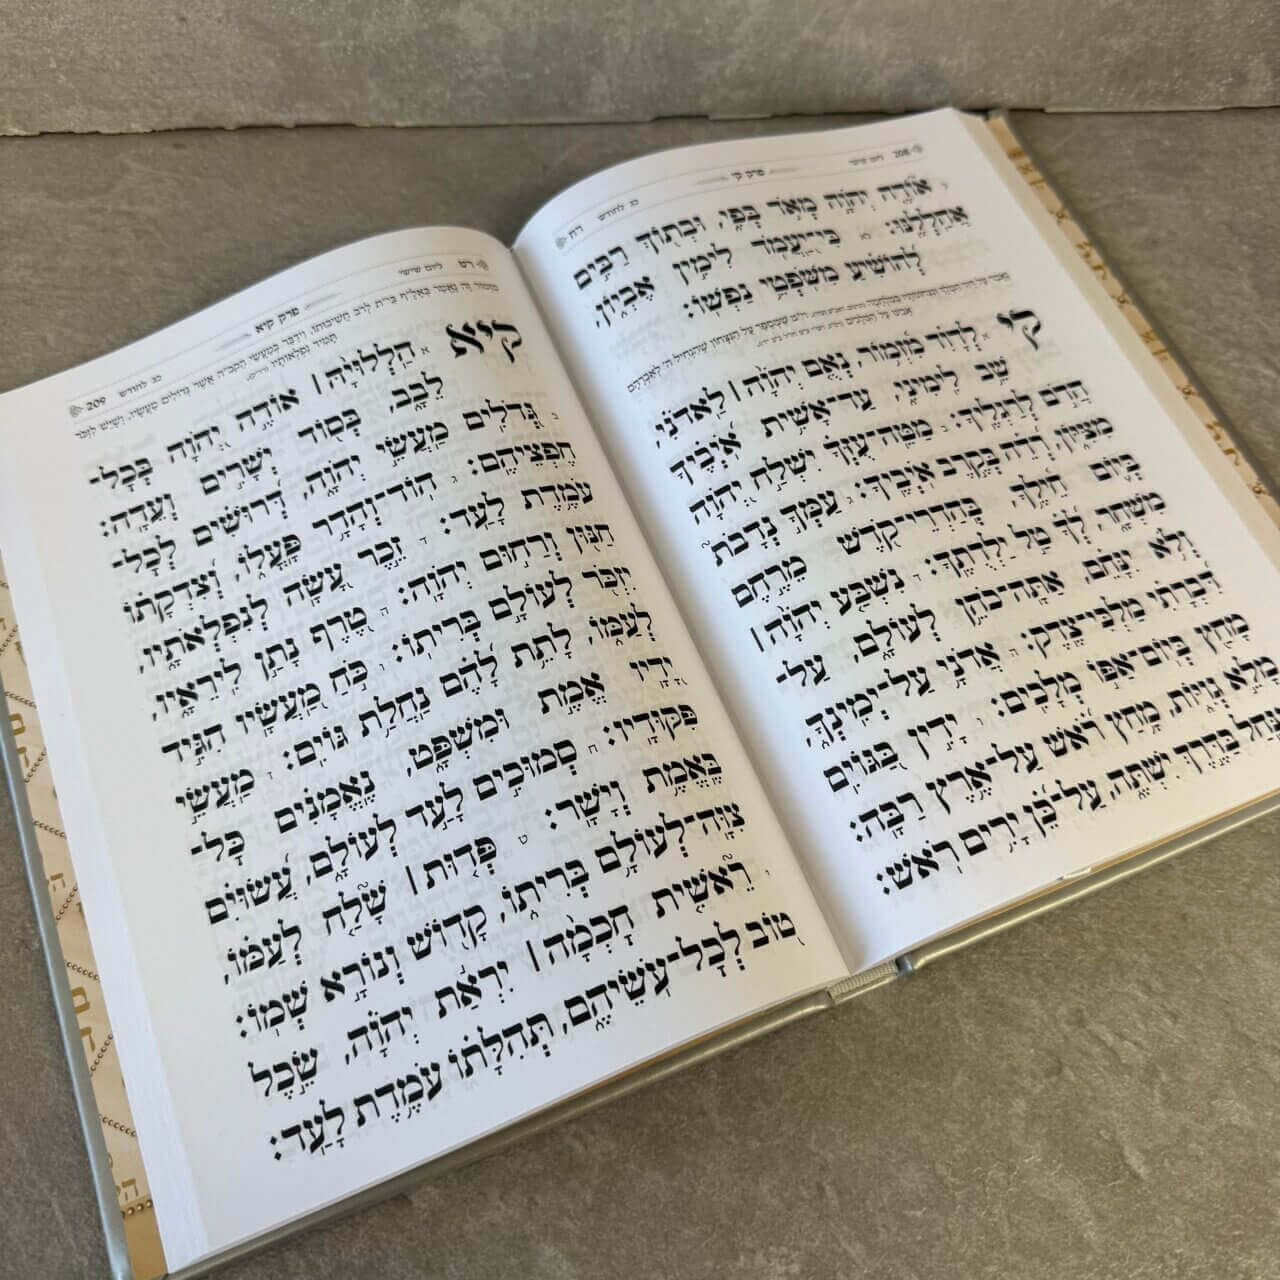 208 ליום שישי פרק קי כג לחודש רח
ל אוֹדֶה יְהוָה מְאֹד בְּפִי, וּבְתוֹךְ רַבִּים
אֲהַלְלֶנּוּ: לא כִּי־יַעֲמֹד לִימִין אֶבְיוֹן,
לְהוֹשִׁיעַ מִשֹּׁפְטֵי נַפְשׁוֹ:
קי א לְדָוִד מִזְמוֹר נְאֻם יְהוָה | לַאדֹנִי,
שֵׁב לִימִינִי, עַד־אָשִׁית אֹיְבֶיךָ
הֲדֹם לְרַגְלֶיךָ: ב מַטֵּה־עֻזְּךָ יִשְׁלַח יְהוָה
מִצִּיּוֹן, רְדֵה בְּקֶרֶב אֹיְבֶיךָ: ג עַמְּךָ נְדָבֹת
בְּיוֹם חֵילֶךָ, בְּהַדְרֵי־קֹדֶשׁ מֵרֶחֶם
מִשְׁחָר, לְךָ טַל יַלְדֻתֶיךָ: ד נִשְׁבַּע יְהוָה |
וְלֹא יִנָּחֵם, אַתָּה־כֹהֵן לְעוֹלָם, עַל־
דִּבְרָתִי מַלְכִּי־צֶדֶק: ה אֲדֹנָי עַל־יְמִינְךָ,
מָחַץ בְּיוֹם־אַפּוֹ מְלָכִים: ו יָדִין בַּגּוֹיִם
מָלֵא גְוִיּוֹת, מָחַץ רֹאשׁ עַל־אֶרֶץ רַבָּה:
נַחַל בַּדֶּרֶךְ יִשְׁתֶּה, עַל־כֵּן יָרִים רֹאשׁ:
רט ליום שישי פרק קיא כג לחודש 209
קיא א הַלְלוּיָהּ | אוֹדֶה יְהוָה בְּכָל־
לֵבָב, בְּסוֹד יְשָׁרִים וְעֵדָה:
ב גְּדֹלִים מַעֲשֵׂי יְהוָה, דְּרוּשִׁים לְכָל־
חֶפְצֵיהֶם: ג הוֹד־וְהָדָר פָּעֳלוֹ, וְצִדְקָתוֹ
עֹמֶדֶת לָעַד: ד זֵכֶר עָשָׂה לְנִפְלְאֹתָיו,
חַנּוּן וְרַחוּם יְהוָה: ה טֶרֶף נָתַן לִירֵאָיו,
יִזְכֹּר לְעוֹלָם בְּרִיתוֹ: ו כֹּחַ מַעֲשָׂיו הִגִּיד
לְעַמּוֹ לָתֵת לָהֶם נַחֲלַת גּוֹיִם: ז מַעֲשֵׂי
יָדָיו אֱמֶת וּמִשְׁפָּט, נֶאֱמָנִים כָּל־
פִּקּוּדָיו: ח סְמוּכִים לָעַד לְעוֹלָם, עֲשׂוּיִם
בֶּאֱמֶת וְיָשָׁר: ט פְּדוּת | שָׁלַח לְעַמּוֹ,
צִוָּה־לְעוֹלָם בְּרִיתוֹ, קָדוֹשׁ וְנוֹרָא שְׁמוֹ:
י רֵאשִׁית חָכְמָה | יִרְאַת יְהוָה, שֵׂכֶל
טוֹב לְכָל־עֹשֵׂיהֶם, תְּהִלָּתוֹ עֹמֶדֶת לָעַד: